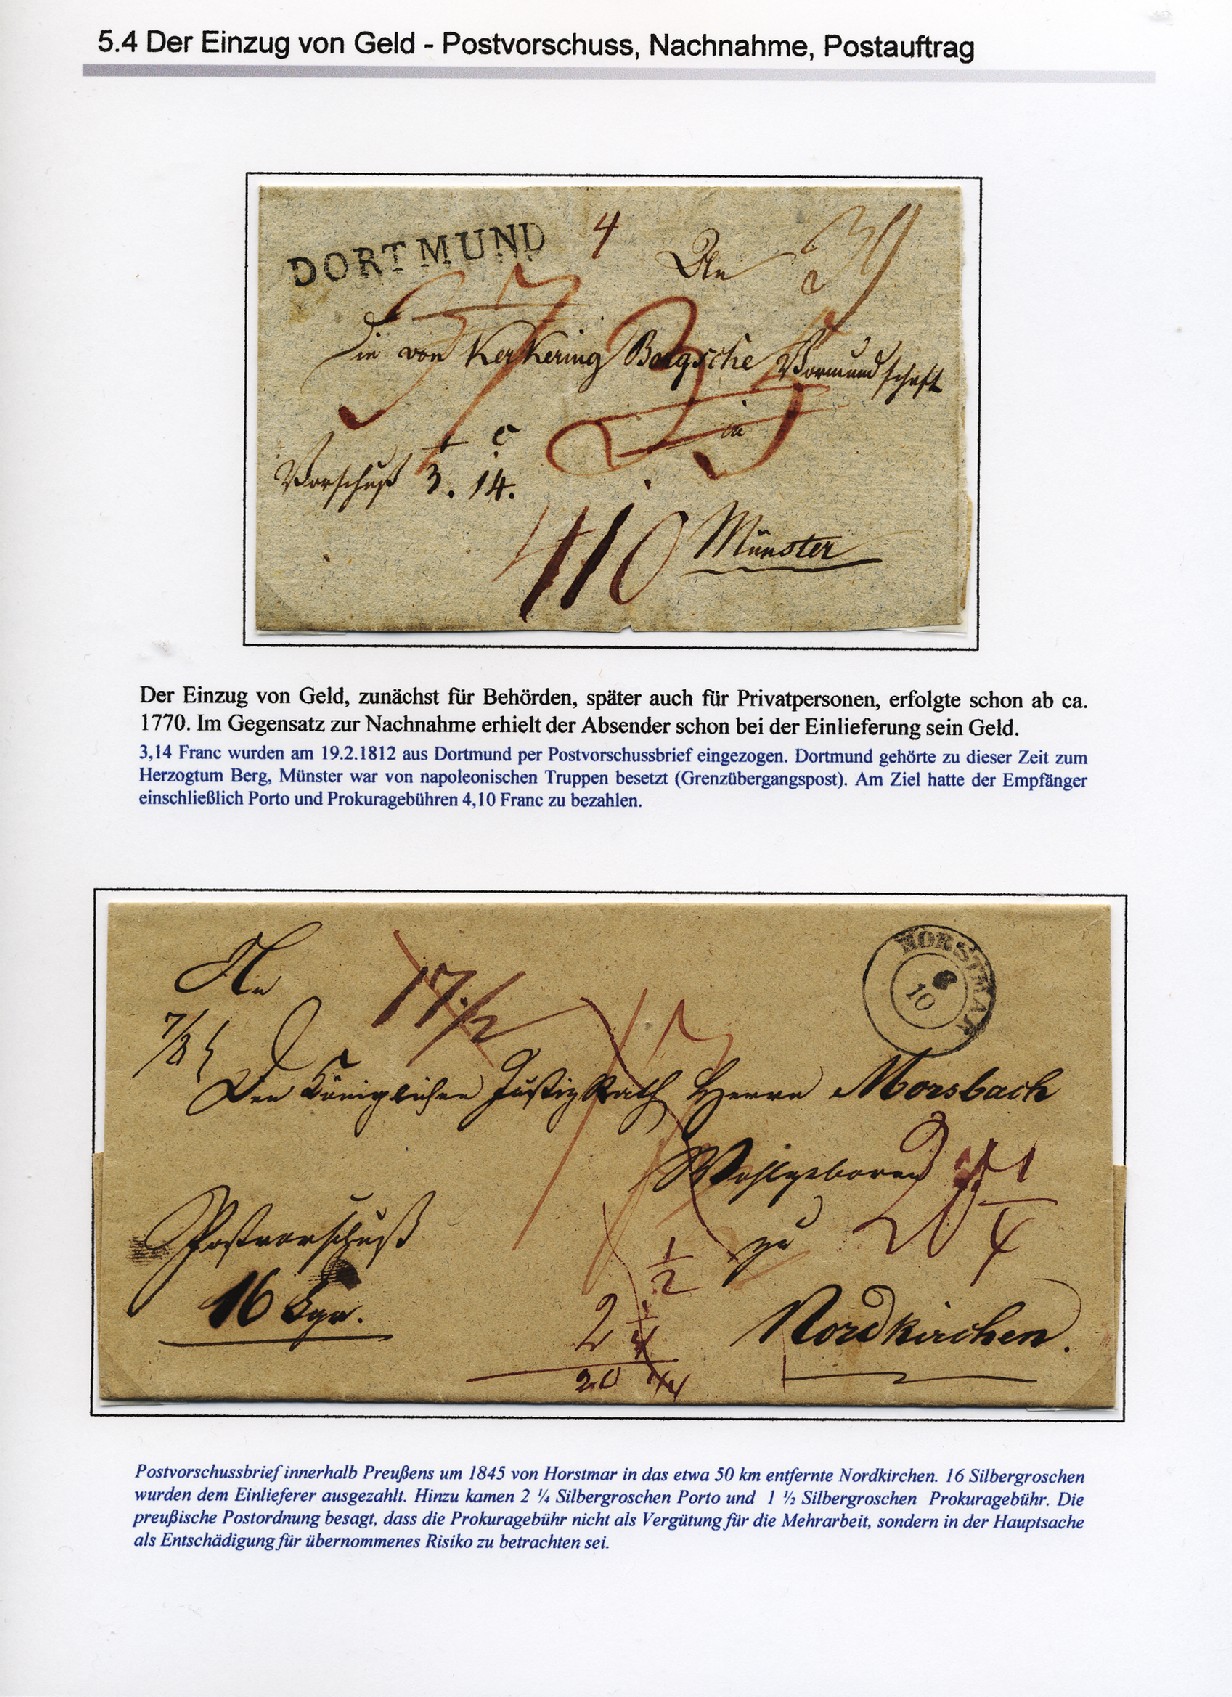 5.4 Der Einzug von Geld - Postvorschuss, Nachnahme, Postauftrag
DORTMUND
4
An
Die von Kerkering Borgsche Vormundschaft
in
Vorschuß 3. 14.
Münster
Der Einzug von Geld, zunächst für Behörden, später auch für Privatpersonen, erfolgte schon ab ca.
1770. Im Gegensatz zur Nachnahme erhielt der Absender schon bei der Einlieferung sein Geld.
3,14 Franc wurden am 19.2.1812 aus Dortmund per Postvorschussbrief eingezogen. Dortmund gehörte zu dieser Zeit zum
Herzogtum Berg, Münster war von napoleonischen Truppen besetzt (Grenzübergangspost). Am Ziel hatte der Empfänger
einschließlich Porto und Prokuragebühren 4,10 Franc zu bezahlen.
HORSTMAR
10
An
17 1/2
Den Königlichen Justiz Rath Herrn Morsbach
Wohlgeboren
20 1/4
Postvorschuß
zu
1/2
16 Sgr.
2 1/4
Nordkirchen.
20
Postvorschussbrief innerhalb Preußens um 1845 von Horstmar in das etwa 50 km entfernte Nordkirchen. 16 Silbergroschen
wurden dem Einlieferer ausgezahlt. Hinzu kamen 2 ¼ Silbergroschen Porto und 1 ½ Silbergroschen Prokuragebühr. Die
preußische Postordnung besagt, dass die Prokuragebühr nicht als Vergütung für die Mehrarbeit, sondern in der Hauptsache
als Entschädigung für übernommenes Risiko zu betrachten sei.